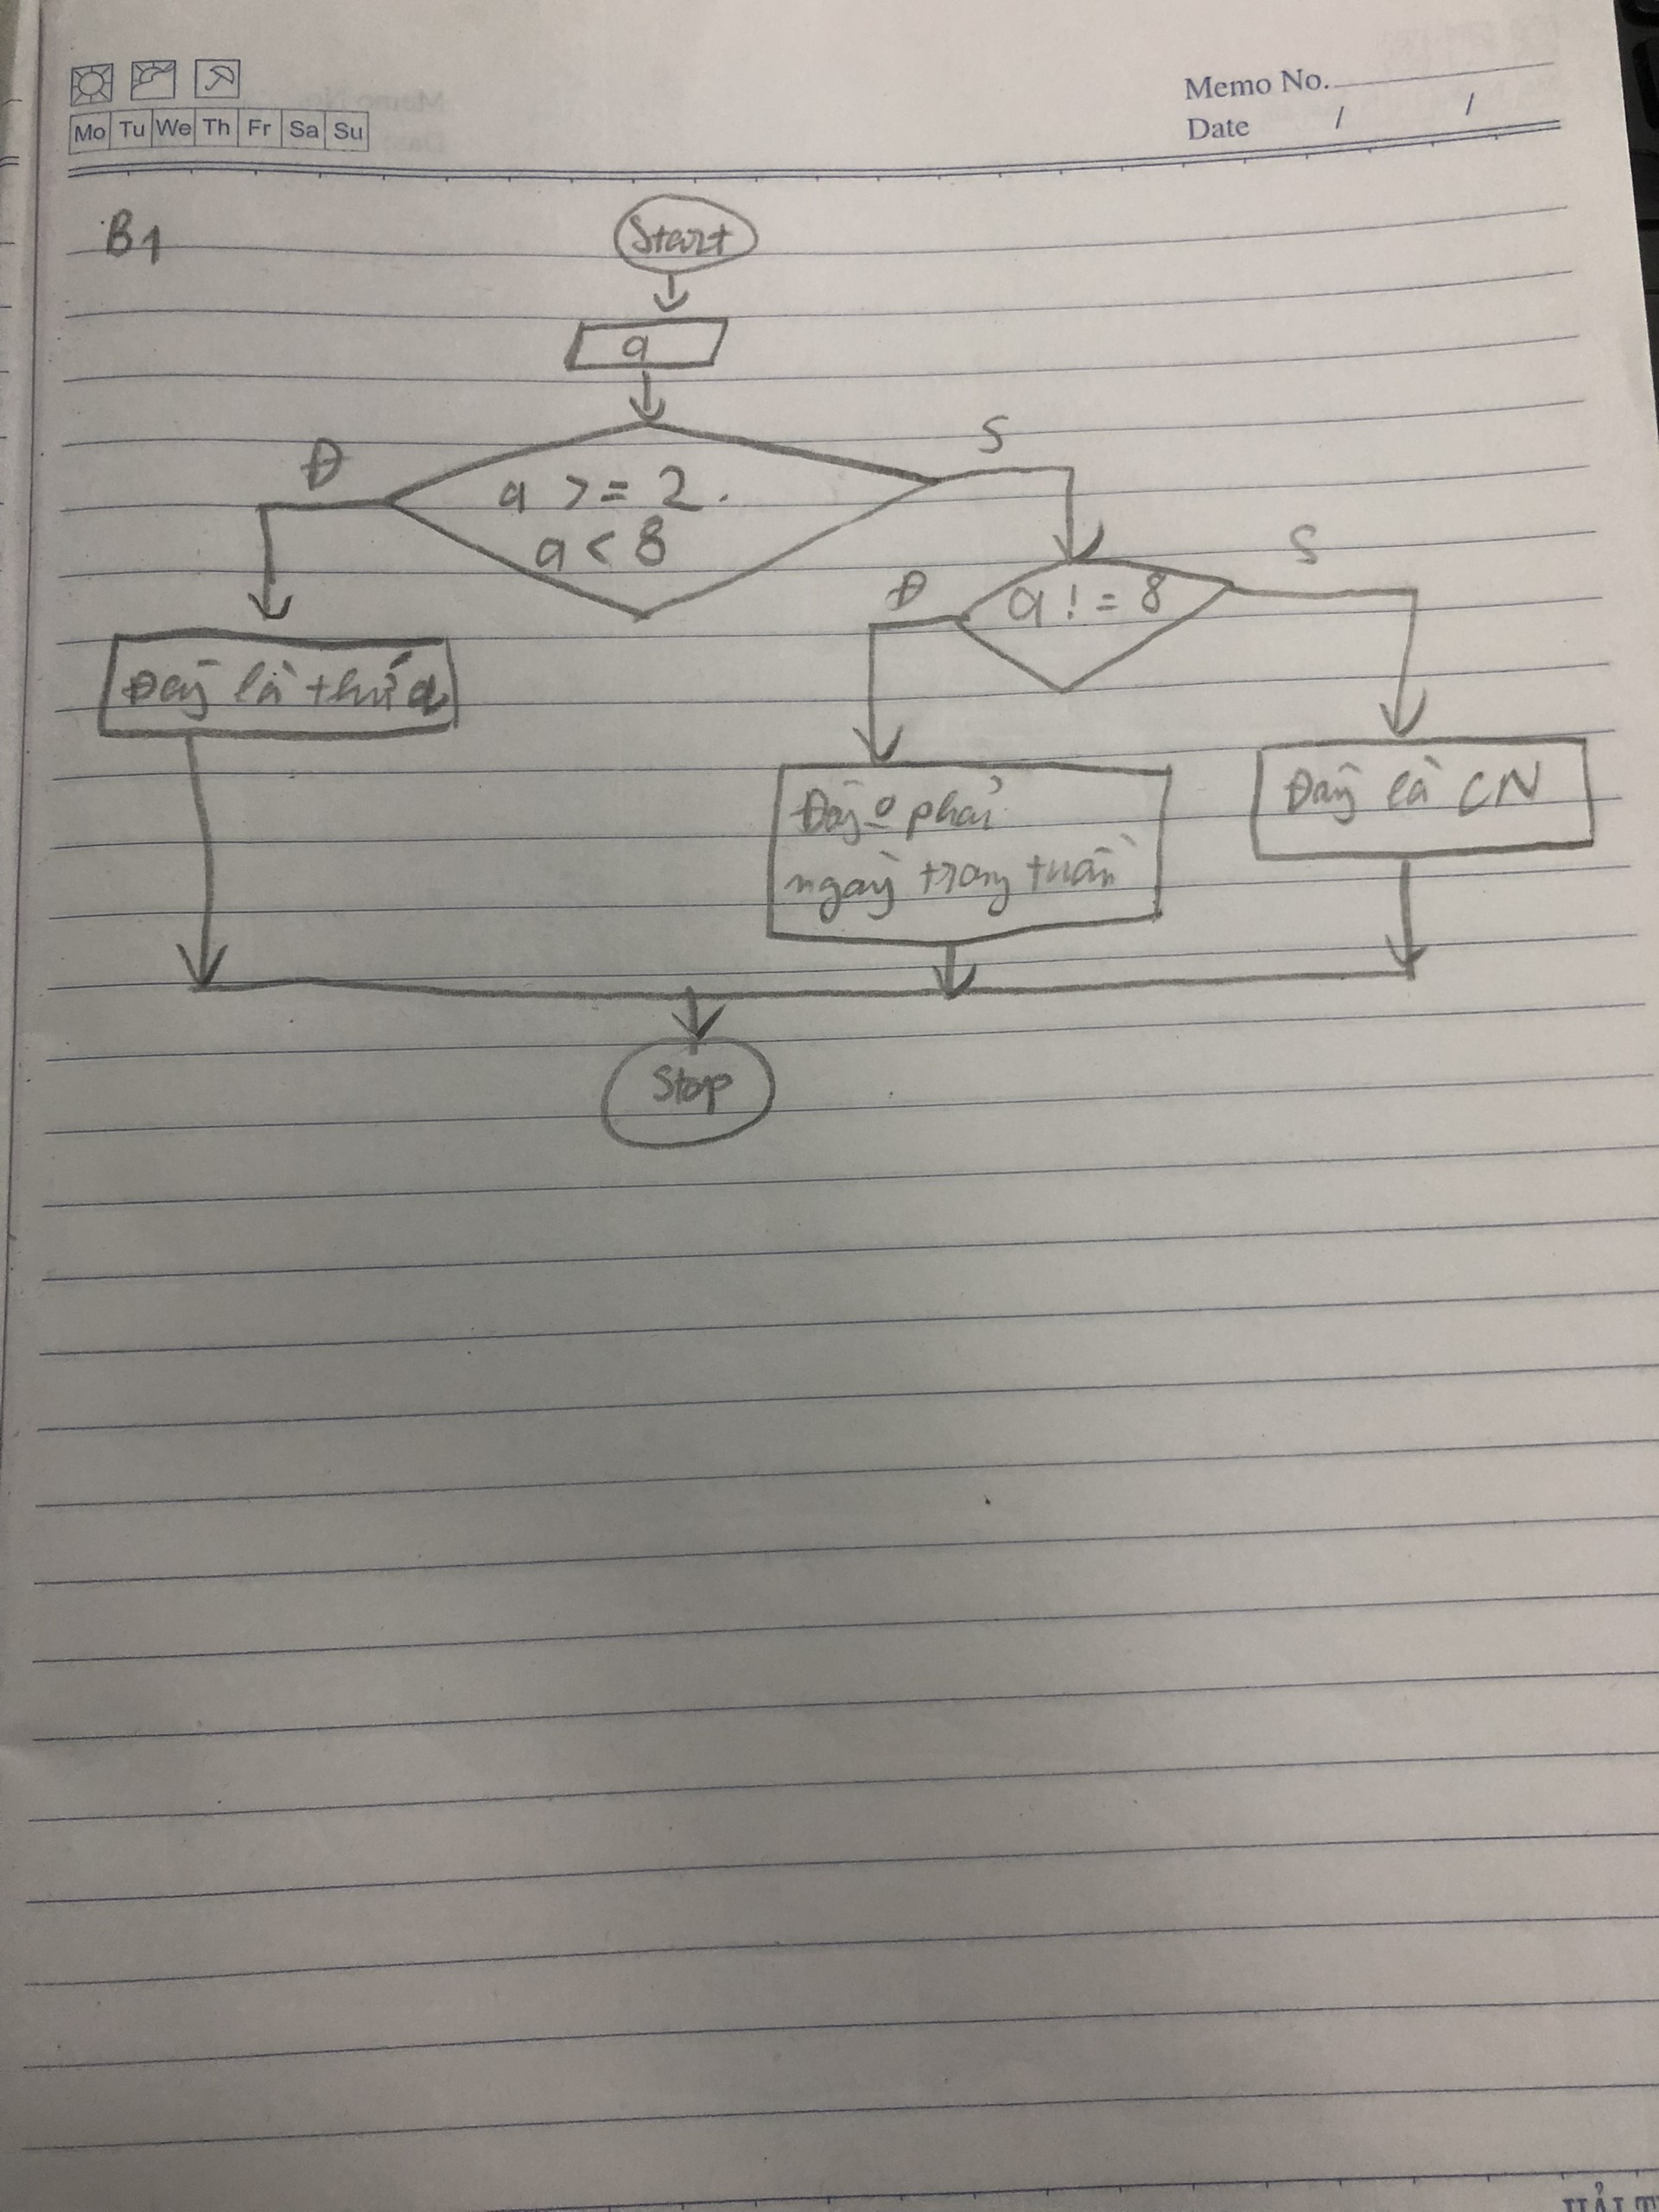 Memo No.
Mo Tu We Th Fr Sa Su
Date / /
B1
Start
a
Đ
S
a >= 2.
a < 8
Đ
S
a != 8
Đây là thứ a
Đây o phải
ngày trong tuần
Đây là CN
Stop